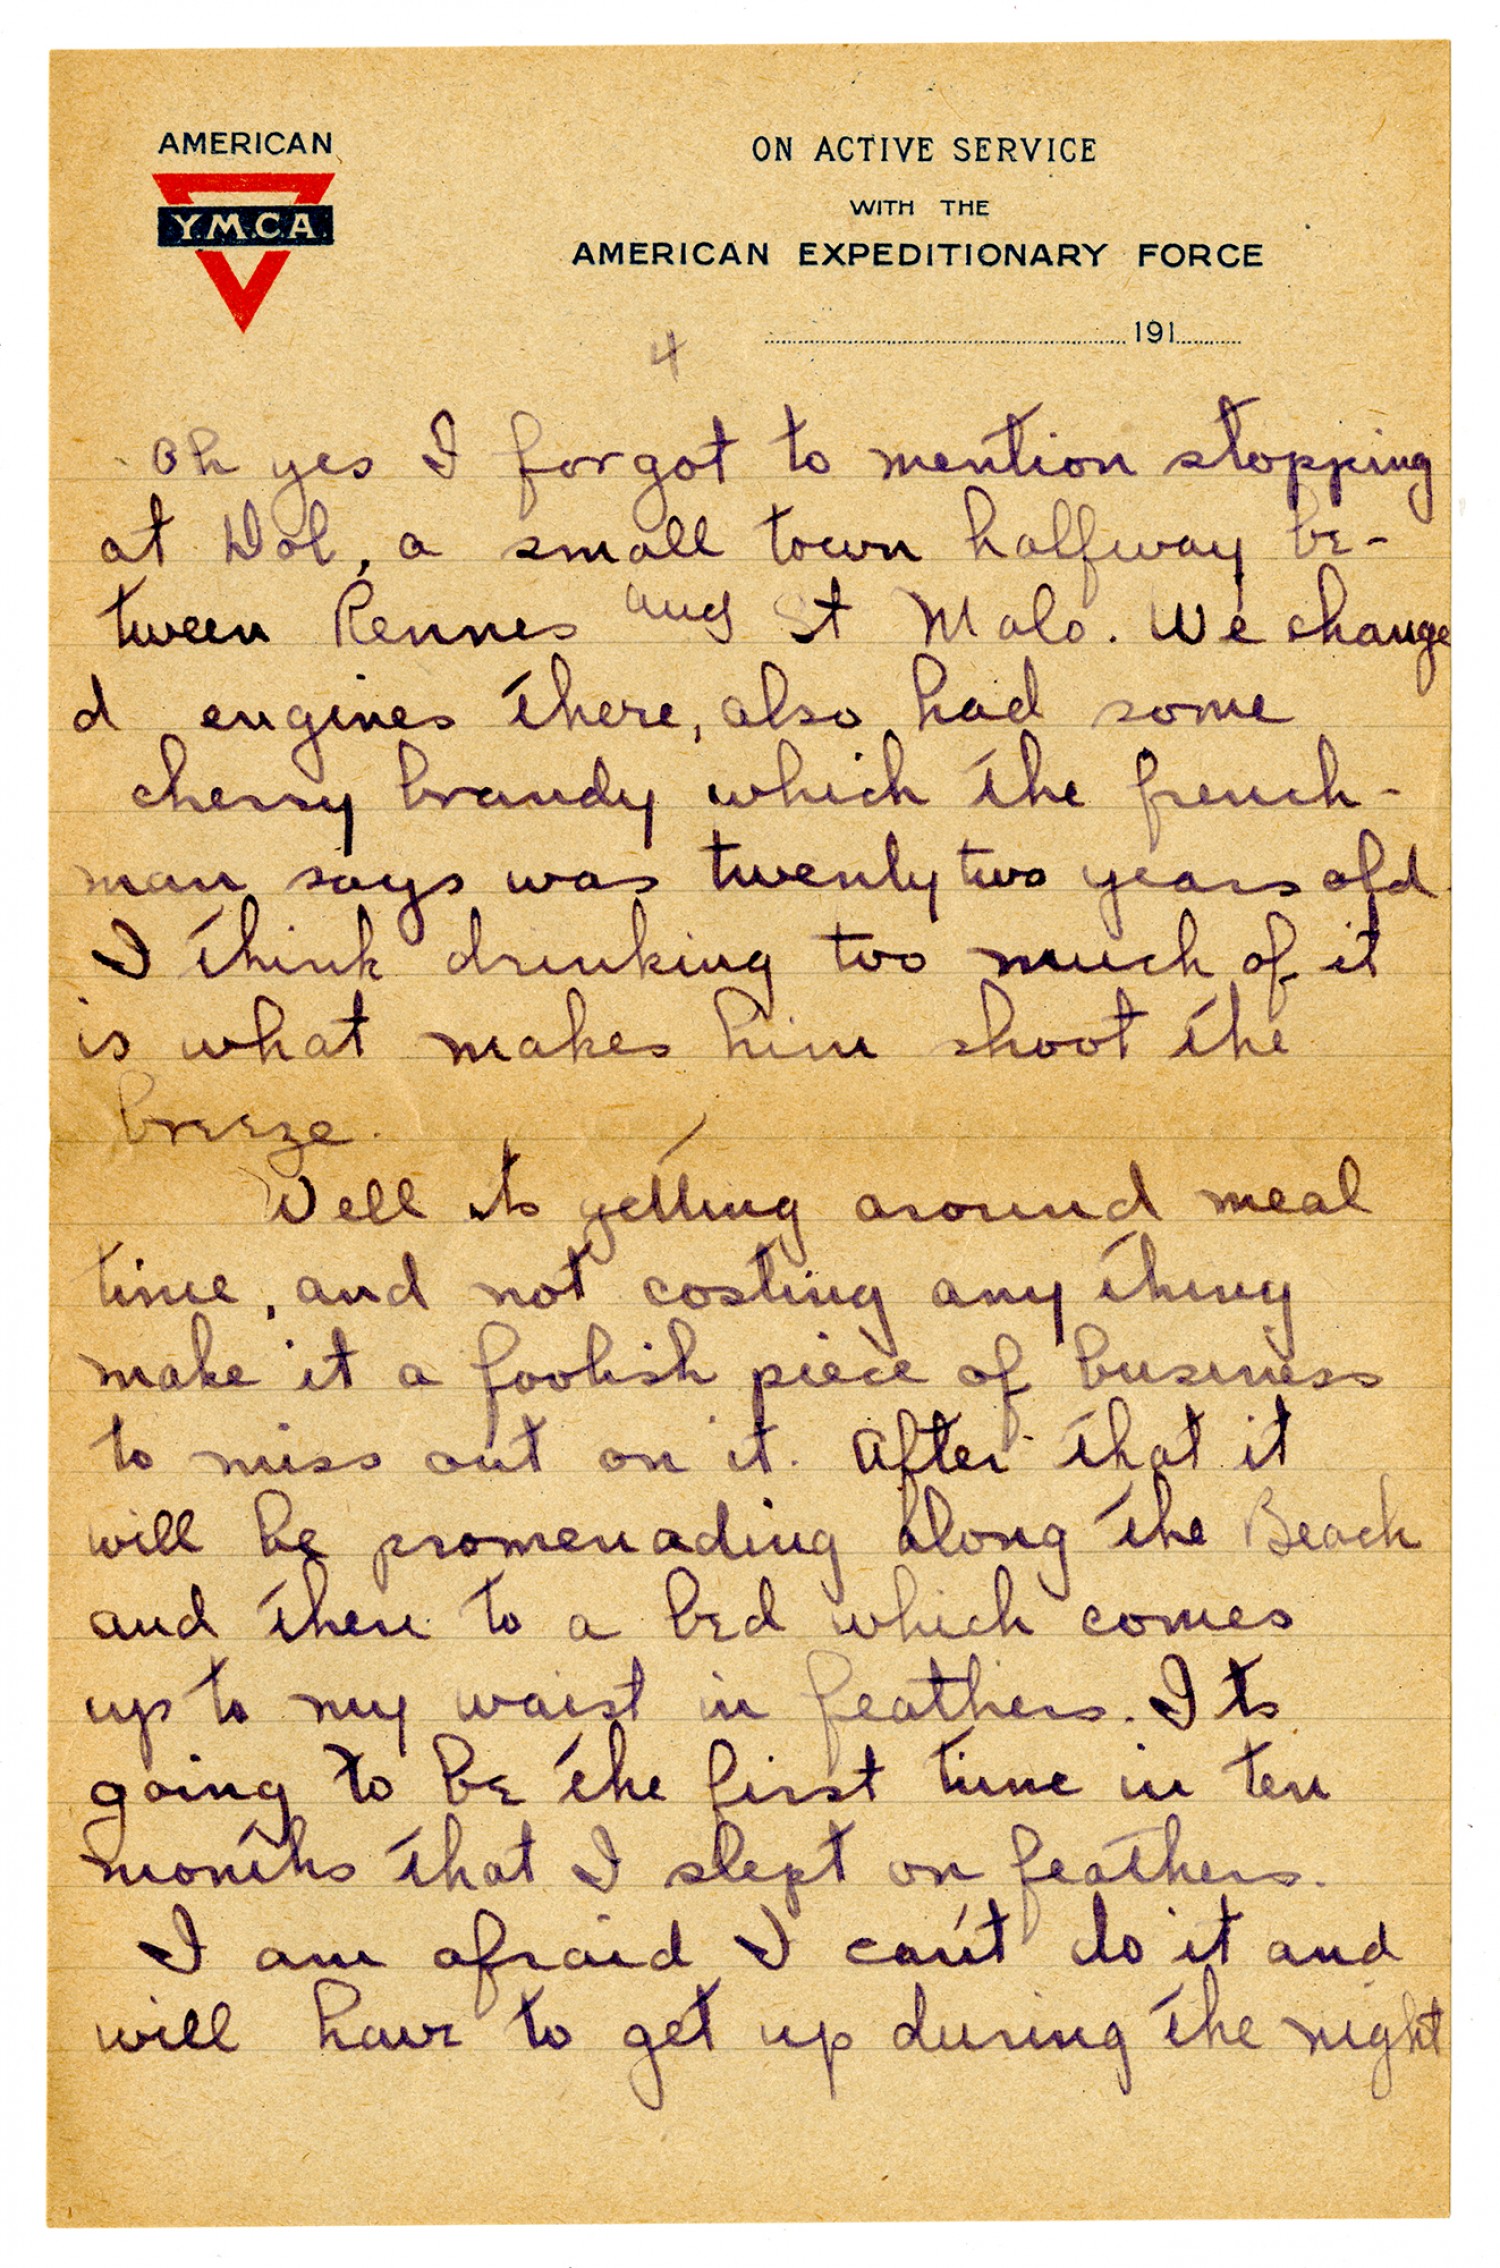 AMERICAN
Y.M.C.A.
ON ACTIVE SERVICE
WITH THE
AMERICAN EXPEDITIONARY FORCE
191
4
Oh yes I forgot to mention stopping
at Dol, a small town halfway be-
tween Rennes and St Malo. We change
d engines there, also had some
cherry brandy which the french-
man says was twenty two years old.
I think drinking too much of it
is what makes him shoot the
breeze.
Well its getting around meal
time, and not costing any thing
make it a foolish piece of business
to miss out on it. After that it
will be promenading along the Beach
and then to a bed which comes
up to my waist in feathers. Its
going to be the first time in ten
months that I slept on feathers.
I am afraid I can't do it and
will have to get up during the night